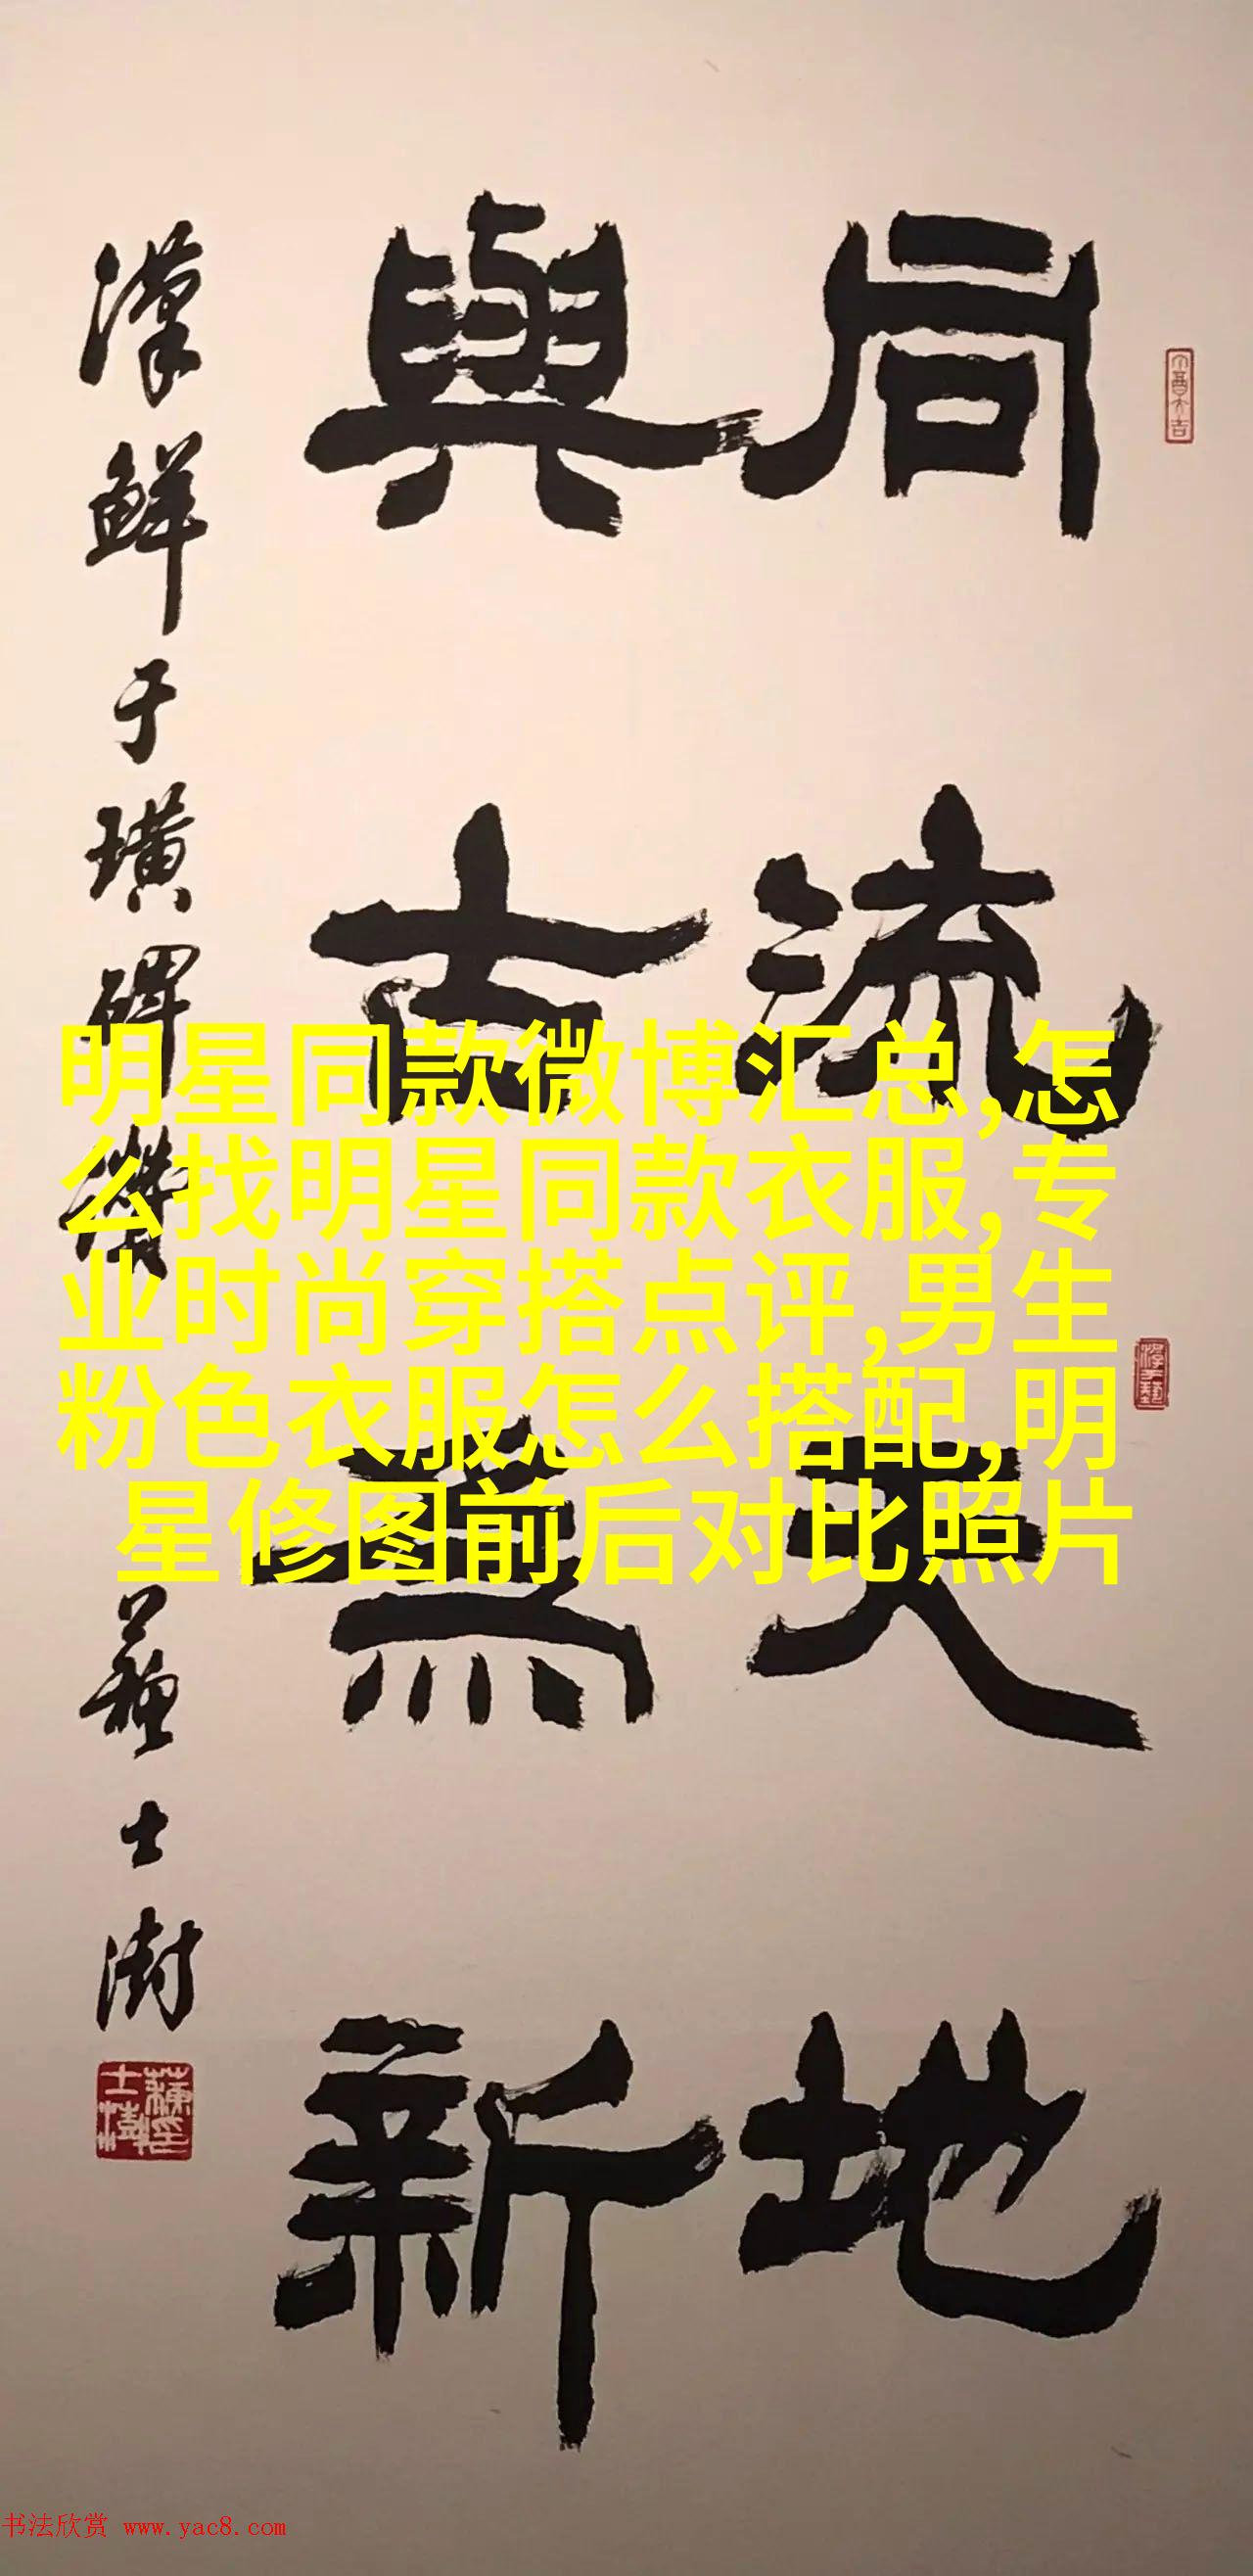 同流天地
與古為新
漢鮮于璜碑
蘇士澍
明星同款微博汇总,怎
么找明星同款衣服,专
业时尚穿搭点评,男生
粉色衣服怎么搭配,明
星修图前后对比照片
书法欣赏 www.yac8.com